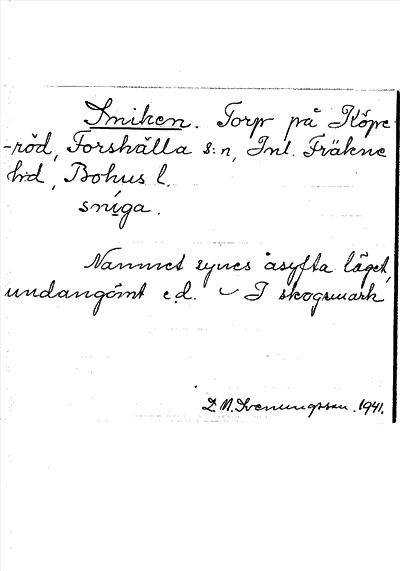 Sniken. Torp på Köpe-
-röd, Forshälla s:n, Inl. Fräkne
hd, Bohus l.
sníga.
Namnet synes åsyfta läget,
undangömt e.d. I skogsmark
L. N. Svenungsson. 1941.